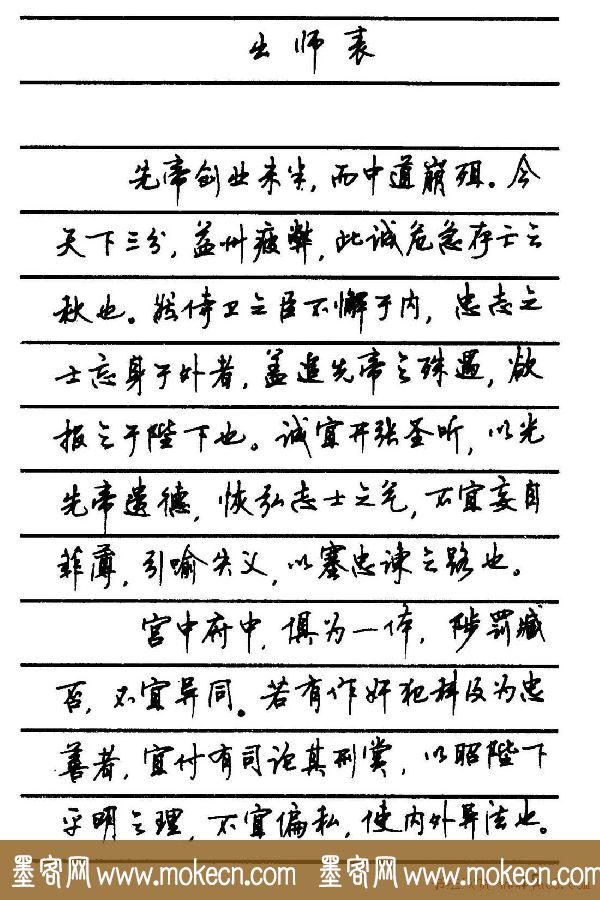 出师表
先帝创业未半，而中道崩殂。今
天下三分，益州疲弊，此诚危急存亡之
秋也。然侍卫之臣不懈于内，忠志之
士忘身于外者，盖追先帝之殊遇，欲
报之于陛下也。诚宜开张圣听，以光
先帝遗德，恢弘志士之气，不宜妄自
菲薄，引喻失义，以塞忠谏之路也。
宫中府中，俱为一体，陟罚臧
否，不宜异同。若有作奸犯科及为忠
善者，宜付有司论其刑赏，以昭陛下
平明之理，不宜偏私，使内外异法也。
墨客网 www.mokecn.com 墨客网 www.mokecn.com